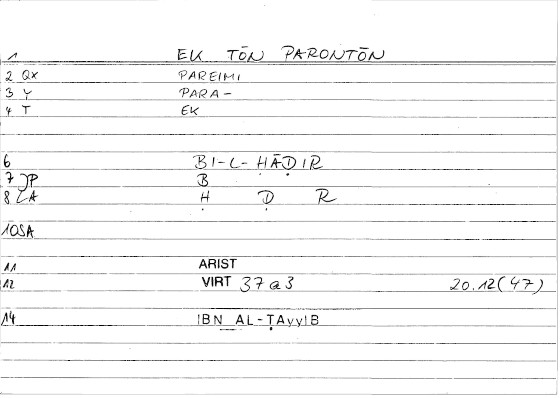 1 EK TŌN PARONTŌN
2 QX PAREIMI
3 Y PARA-
4 T EK
6 BI-L-ḤĀḌIR
7 JP B
8 LA Ḥ Ḍ R
10SA
11 ARIST
12 VIRT 37a3 20.12(47)
14 IBN AL-ṬAyyIB